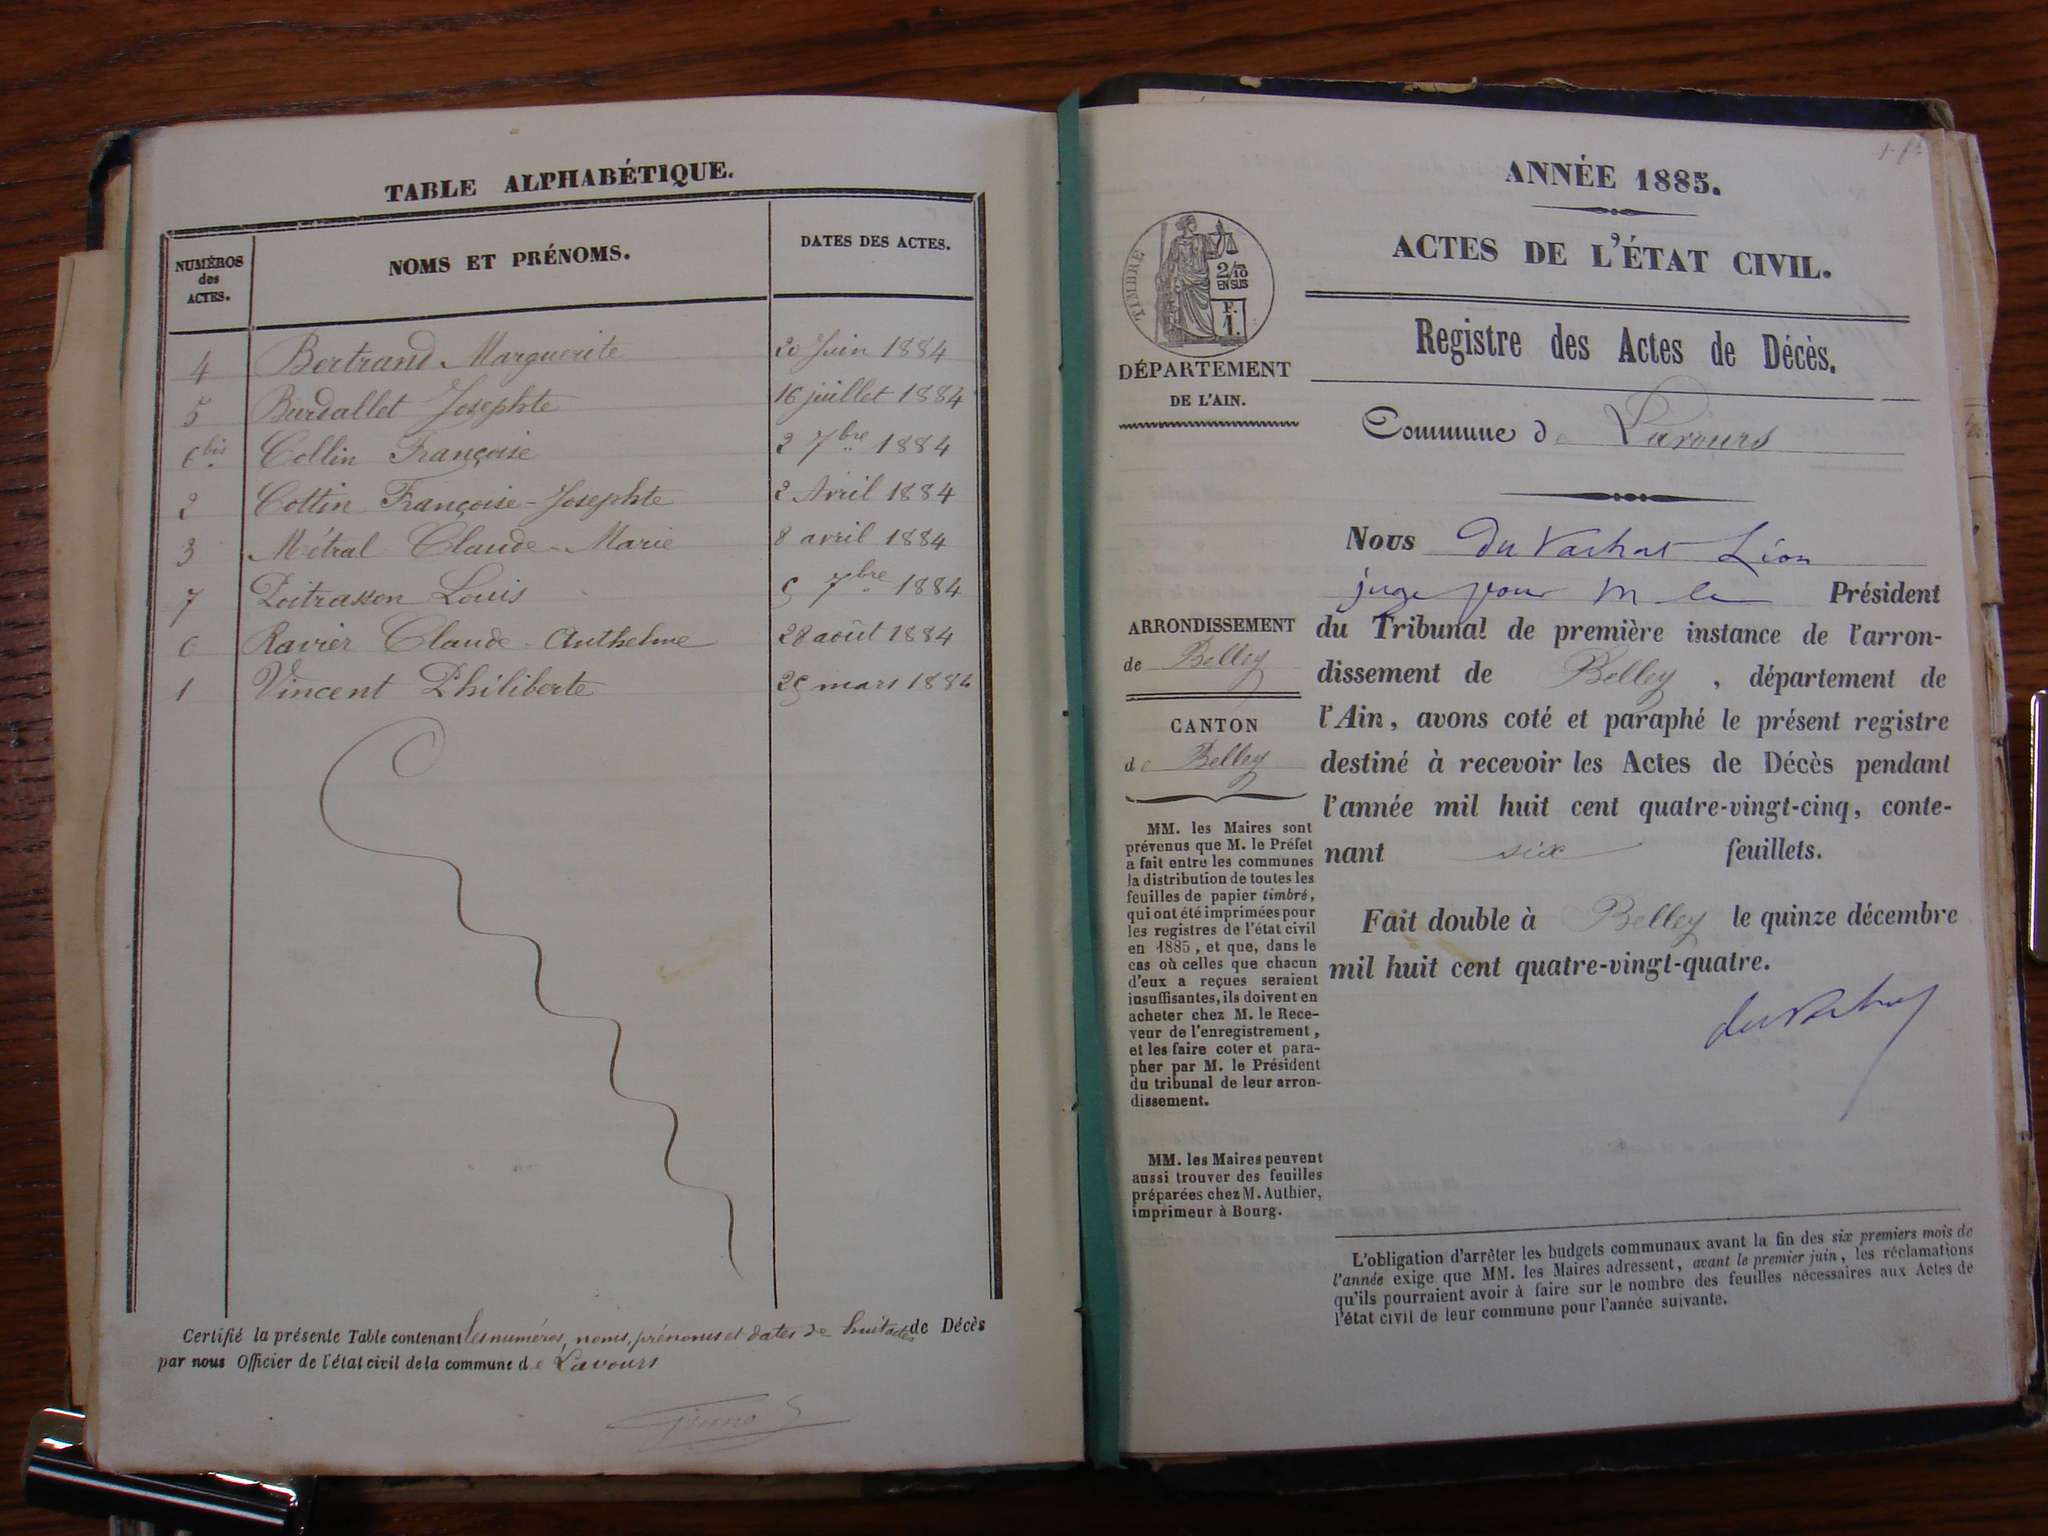 TABLE ALPHABÉTIQUE.
NUMÉROS
des
ACTES.
NOMS ET PRÉNOMS.
DATES DES ACTES.
4 Bertrand Marguerite 20 Juin 1884
5 Burdallet Josephte 16 juillet 1884
6 bis Collin Françoise 2 7bre 1884
2 Cottin Françoise-Josephte 2 Avril 1884
3 Métral Claude-Marie 8 avril 1884
7 Poitrasson Louis 7bre 1884
6 Ravier Claude-Anthelme 28 août 1884
1 Vincent Philiberte mars 1884
Certifié la présente Table contenant les numéros, noms, prénoms et dates de huit actes de Décès
par nous Officier de l'état civil de la commune de Lavours
ANNÉE 1885.
ACTES DE L'ÉTAT CIVIL.
TIMBRE
2/10
EN SUS
F.
1.
DÉPARTEMENT
DE L'AIN.
Registre des Actes de Décès.
Commune de Lavours
ARRONDISSEMENT
de Belley
CANTON
de Belley
MM. les Maires sont
prévenus que M. le Préfet
a fait entre les communes
la distribution de toutes les
feuilles de papier timbré,
qui ont été imprimées pour
les registres de l'état civil
en 1885, et que, dans le
cas où celles que chacun
d'eux a reçues seraient
insuffisantes, ils doivent en
acheter chez M. le Rece-
veur de l'enregistrement,
et les faire coter et para-
pher par M. le Président
du tribunal de leur arron-
dissement.
MM. les Maires peuvent
aussi trouver des feuilles
préparées chez M. Authier,
imprimeur à Bourg.
Nous du Vachat Léon
juge pour M le Président
du Tribunal de première instance de l'arron-
dissement de Belley, département de
l'Ain, avons coté et paraphé le présent registre
destiné à recevoir les Actes de Décès pendant
l'année mil huit cent quatre-vingt-cinq, conte-
nant six feuillets.
Fait double à Belley le quinze décembre
mil huit cent quatre-vingt-quatre.
du Vachat
L'obligation d'arrêter les budgets communaux avant la fin des six premiers mois de
l'année exige que MM. les Maires adressent, avant le premier juin, les réclamations
qu'ils pourraient avoir à faire sur le nombre des feuilles nécessaires aux Actes de
l'état civil de leur commune pour l'année suivante.